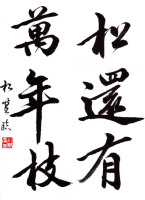 松還有
萬年枝